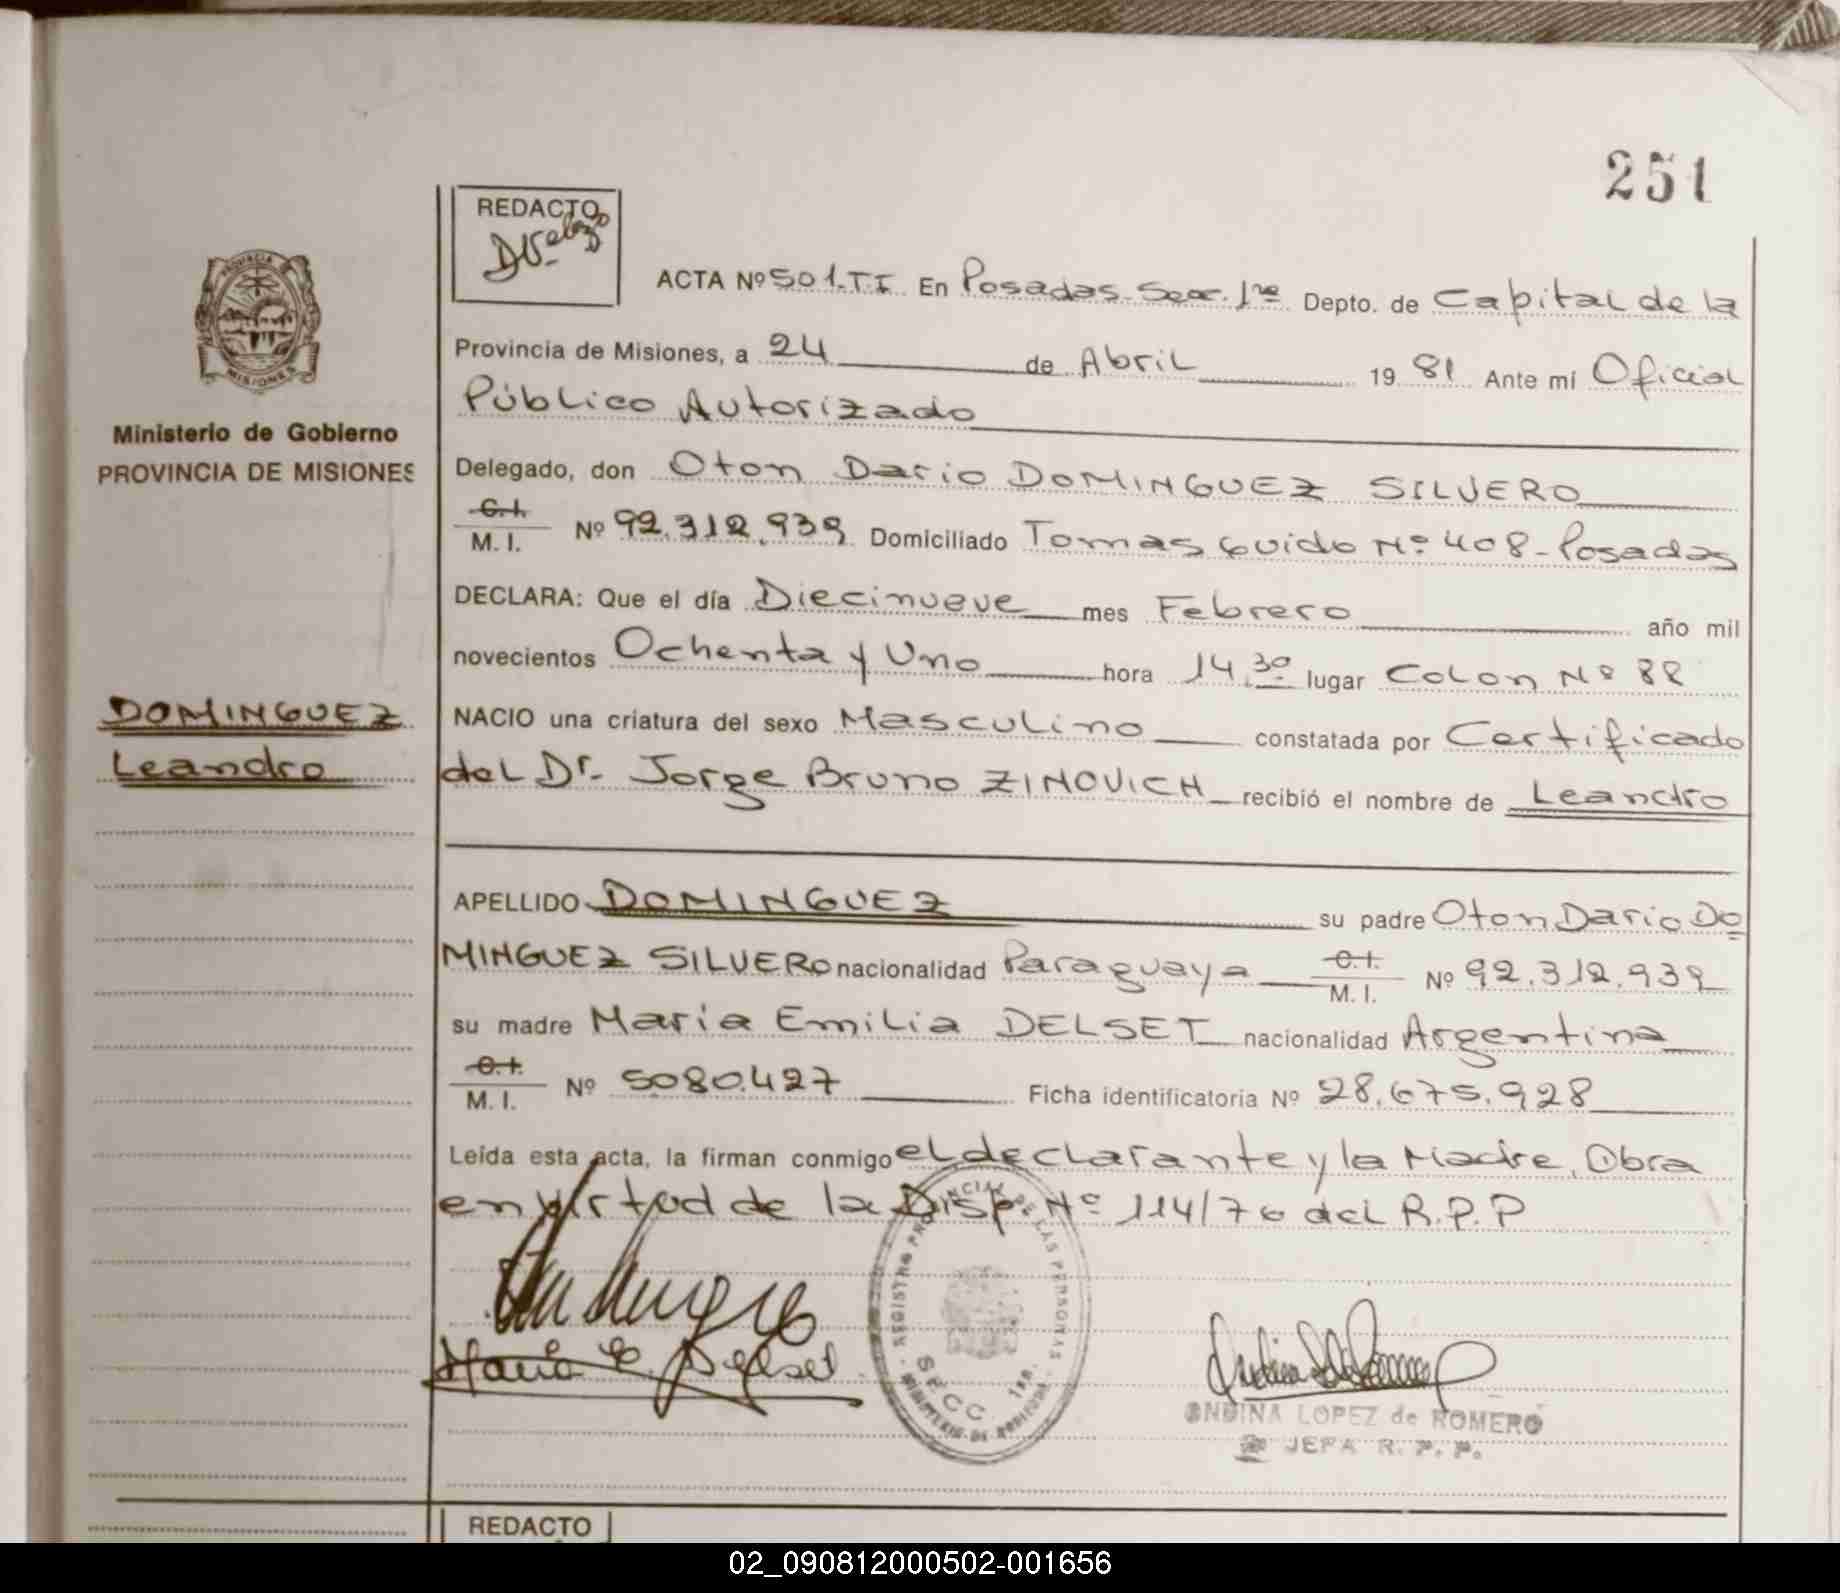 251
REDACTO
ACTA Nº 501-T.I. En Posadas Secc. 1ra Depto. de Capital de la
Provincia de Misiones, a 24 de Abril 1981 Ante mí Oficial
Público Autorizado
Ministerio de Gobierno
PROVINCIA DE MISIONES
Delegado, don Oton Dario DOMINGUEZ SILVERO
C.I. M.I. Nº 92.312.939 Domiciliado Tomas Guido Nº 408-Posadas
DECLARA: Que el día Diecinueve mes Febrero año mil
novecientos Ochenta y Uno hora 14,30 lugar Colon Nº 88
DOMINGUEZ
Leandro
NACIO una criatura del sexo Masculino constatada por Certificado
del Dr. Jorge Bruno ZINOVICH recibió el nombre de Leandro
APELLIDO DOMINGUEZ su padre Oton Dario DO
MINGUEZ SILVERO nacionalidad Paraguaya C.I. M.I. Nº 92.312.939
su madre Maria Emilia DELSET nacionalidad Argentina
C.I. M.I. Nº 5080.427 Ficha identificatoria Nº 28.675.928
Leída esta acta, la firman conmigo el declarante y la Madre. Obra
en virtud de la Disp. Nº 114/76 del R.P.P
REGISTRO PROVINCIAL DE LAS PERSONAS
SECC. 1RA.
Maria E. Delset
ONDINA LOPEZ de ROMERO
JEFA R. P. P.
REDACTO
02_090812000502-001656